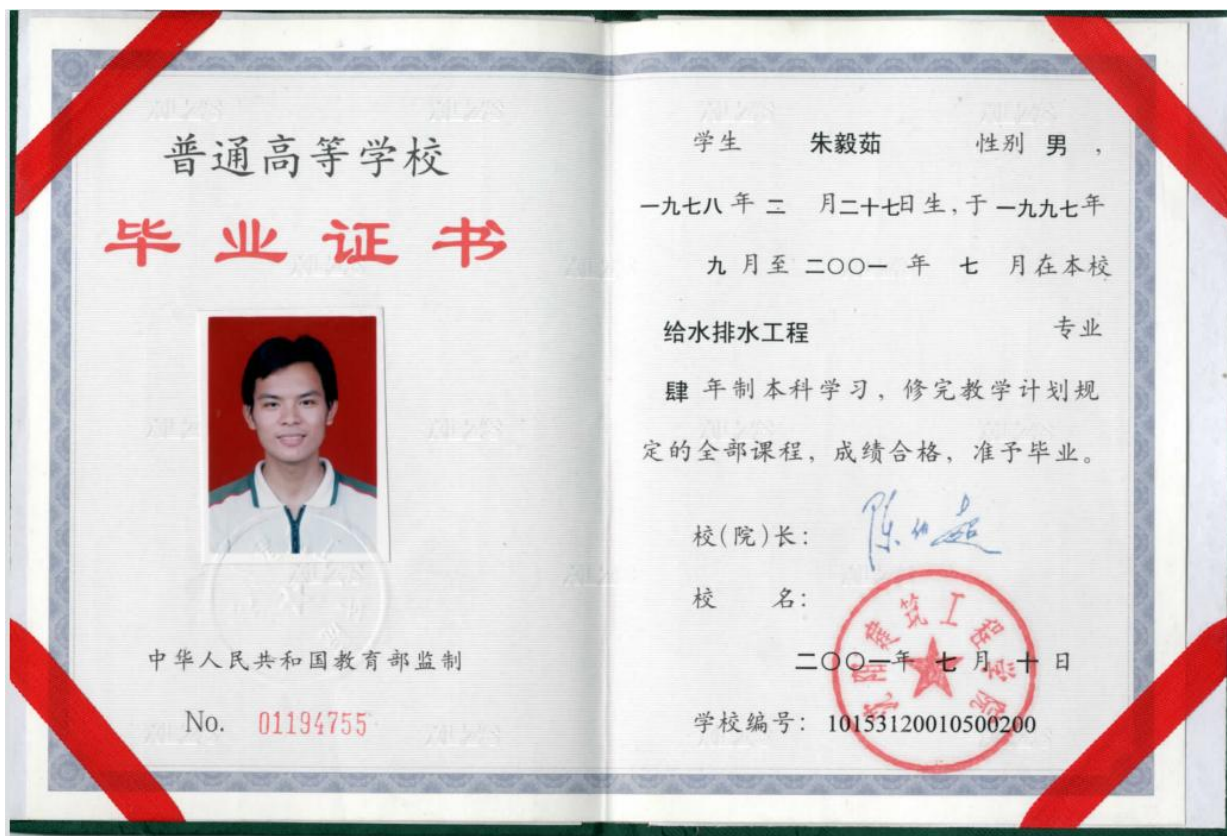 普通高等学校
毕业证书
中华人民共和国教育部监制
No. 01194755
学生 朱毅茹 性别 男，
一九七八年 二 月二十七日生，于一九九七年
九 月至 二〇〇一 年 七 月在本校
给水排水工程 专业
肆 年制本科学习，修完教学计划规
定的全部课程，成绩合格，准予毕业。
校(院)长：
校 名：
建筑工程学院
二〇〇一年 七 月 十 日
学校编号：10153120010500200